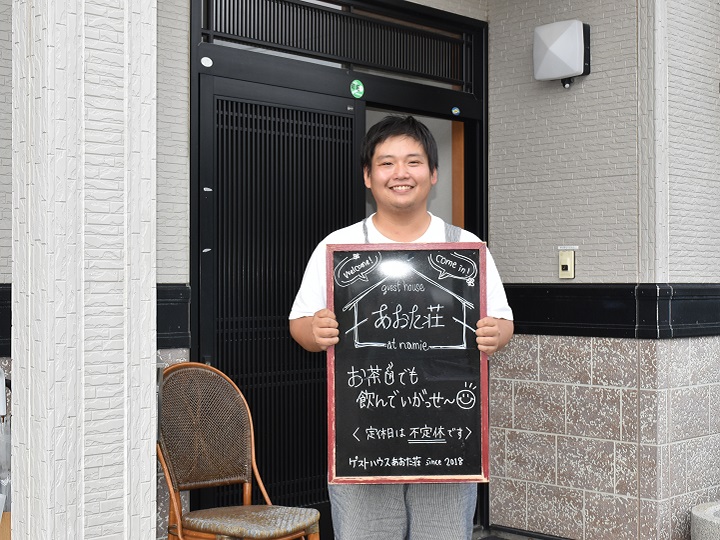 Welcome!
Come in!
guest house
あおた荘
at namie
お茶でも
飲んでいがっせ〜
〈定休日は 不定休です〉
ゲストハウスあおた荘 since 2018